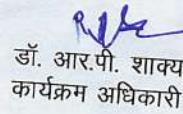 डॉ. आर.पी. शाक्य
कार्यक्रम अधिकारी